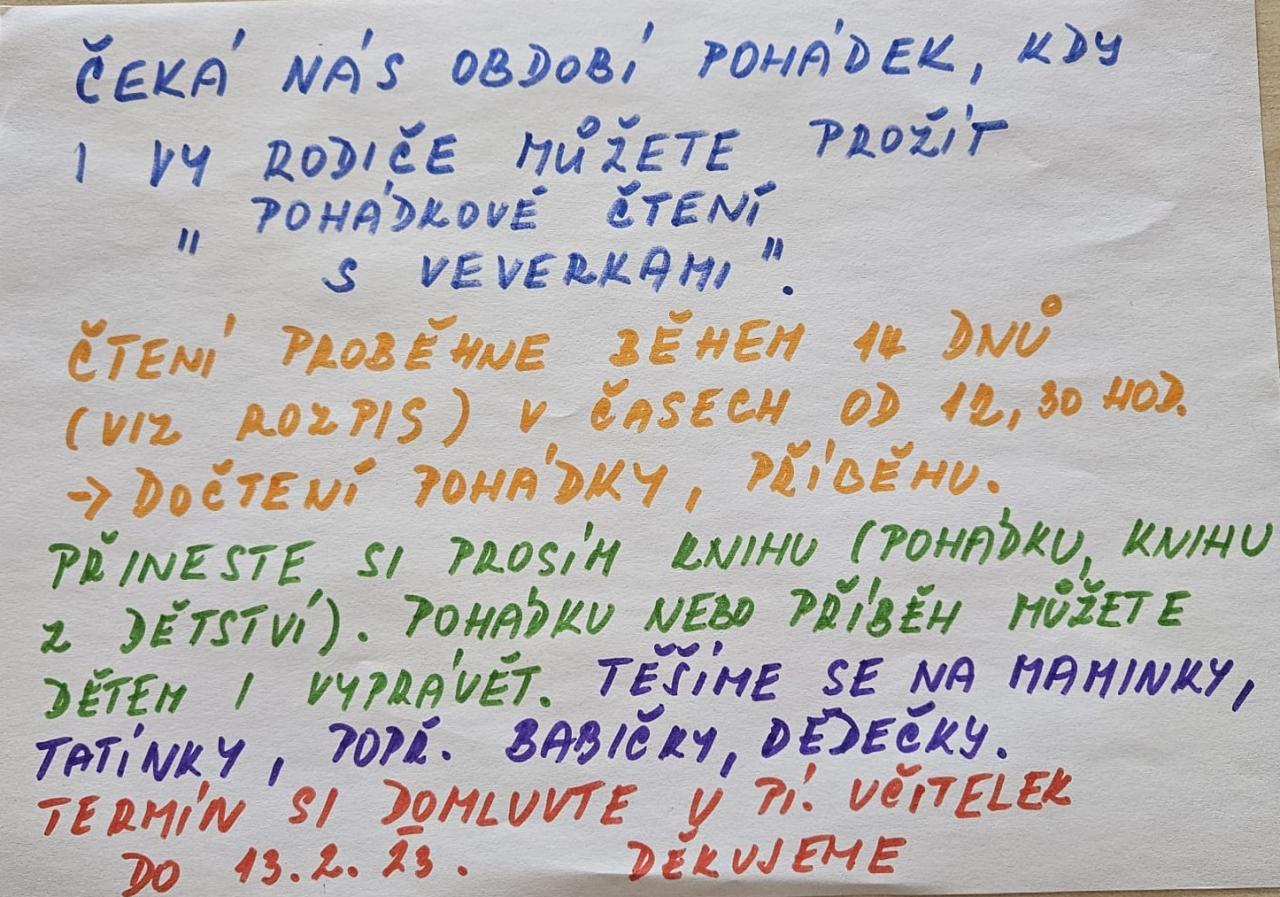 ČEKÁ NÁS OBDOBÍ POHÁDEK, KDY
I VY RODIČE MŮŽETE PROŽÍT
" POHÁDKOVÉ ČTENÍ
S VEVERKAMI".
ČTENÍ PROBĚHNE BĚHEM 14 DNŮ
(VIZ ROZPIS) V ČASECH OD 12,30 HOD.
-> DOČTENÍ POHÁDKY, PŘÍBĚHU.
PŘINESTE SI PROSÍM KNIHU (POHÁDKU, KNIHU
Z DĚTSTVÍ). POHÁDKU NEBO PŘÍBĚH MŮŽETE
DĚTEM I VYPRÁVĚT. TĚŠÍME SE NA MAMINKY,
TATÍNKY, POPŘ. BABIČKY, DĚDEČKY.
TERMÍN SI DOMLUVTE U PÍ. UČITELEK
DO 13.2.23. DĚKUJEME